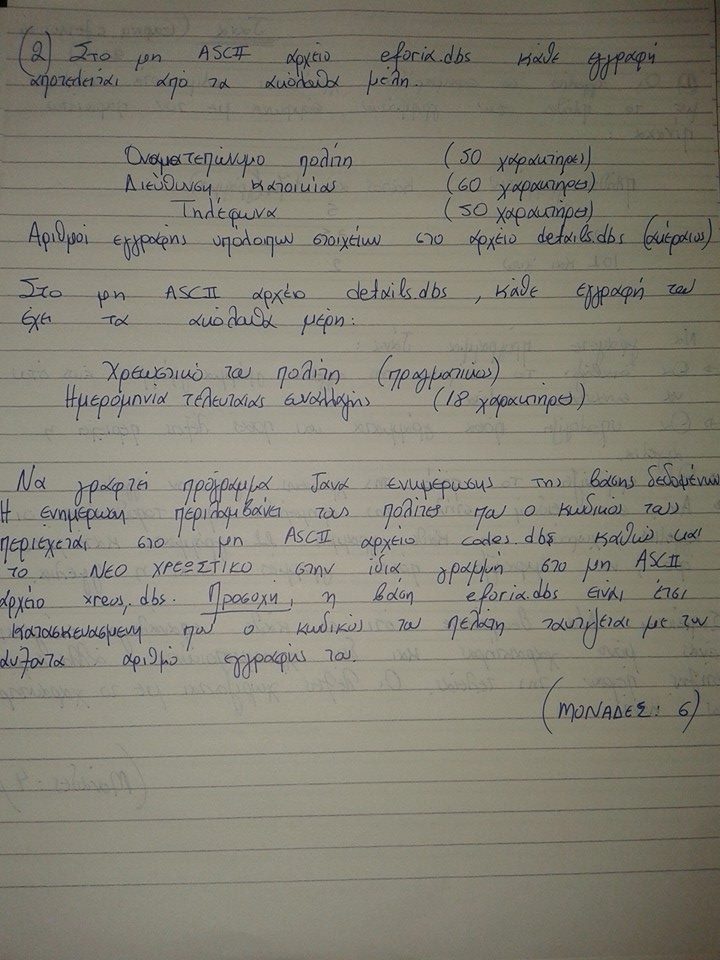 (2) Στο μη ASCII αρχείο eforia.dbs κάθε εγγραφή
αποτελείται από τα ακόλουθα μέλη.
Ονοματεπώνυμο πολίτη (50 χαρακτήρες)
Διεύθυνση κατοικίας (60 χαρακτήρες)
Τηλέφωνα (50 χαρακτήρες)
Αριθμοί εγγραφής υπόλοιπων στοιχείων στο αρχείο details.dbs (ακέραιος)
Στο μη ASCII αρχείο details.dbs, κάθε εγγραφή του
έχει τα ακόλουθα μέρη:
Χρεωστικό του πολίτη (πραγματικός)
Ημερομηνία τελευταίας συναλλαγής (18 χαρακτήρες)
Να γραφτεί πρόγραμμα Java ενημέρωσης της βάσης δεδομένων
Η ενημέρωση περιλαμβάνει τους πολίτες που ο κωδικός τους
περιέχεται στο μη ASCII αρχείο codes.dbs καθώς και
το ΝΕΟ ΧΡΕΩΣΤΙΚΟ στην ίδια γραμμή στο μη ASCII
αρχείο xreos.dbs. Προσοχή, η βάση eforia.dbs είναι έτσι
κατασκευασμένη που ο κωδικός του πελάτη ταυτίζεται με τον
αύξοντα αριθμό εγγραφής του.
(ΜΟΝΑΔΕΣ: 6)